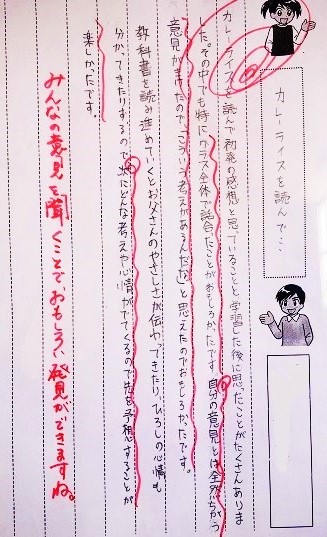 カレーライスを読んで…
カレーライスを読んで初発の感想と思っていることと学習した後に思ったことがたくさんありま
した。その中でも特にクラス全体で話合ったことがおもしろかったです。自分の意見とは全然ちがう
意見がきけたので、「こういう考えがあるんだな」と思えたのでおもしろかったです。
教科書を読み進めていくとお父さんのやさしさが伝わってきたり、ひろしの心情も
分かってきたりするので次にどんな考えや心情がでてくるので先を予想することが
楽しかったです。
みんなの意見を「聞く」ことで、おもしろい発見ができますね。